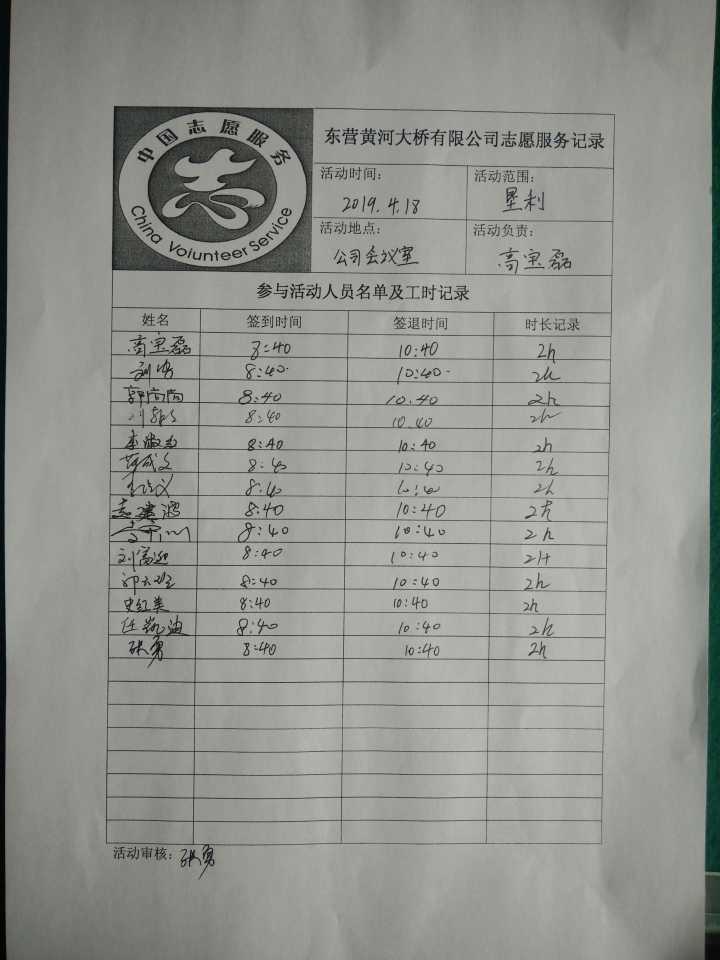 中国志愿服务
China Volunteer Service
东营黄河大桥有限公司志愿服务记录
活动时间： 活动范围：
2019.4.18 垦利
活动地点： 活动负责：
公司会议室 高宝磊
参与活动人员名单及工时记录
姓名 签到时间 签退时间 时长记录
高宝磊 8:40 10:40 2h
8:40 10:40 2h
郭尚尚 8:40 10.40 2h
8:40 10.40 2h
8:40 10:40 2h
8:40 10:40 2h
8:40 10:40 2h
8:40 10:40 2h
8:40 10:40 2h
刘 8:40 10:40 2H
8:40 10:40 2h
史红英 8:40 10:40 2h
任凯迪 8:40 10:40 2h
张勇 8:40 10:40 2h
活动审核：张勇